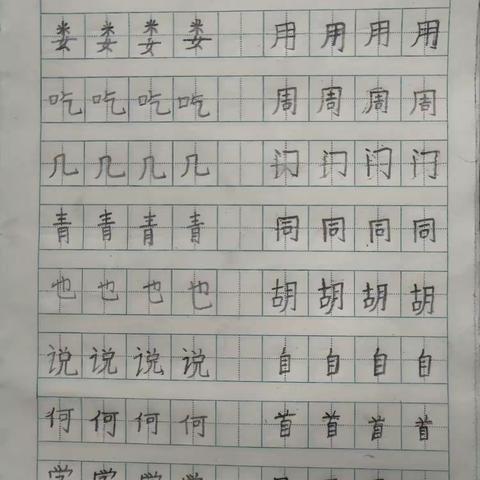 娄娄娄娄 用用用用
吃吃吃吃 周周周周
几几几几 门门门门
青青青青 同同同同
也也也也 胡胡胡胡
说说说说 自自自自
何何何何 首首首首
学学学学